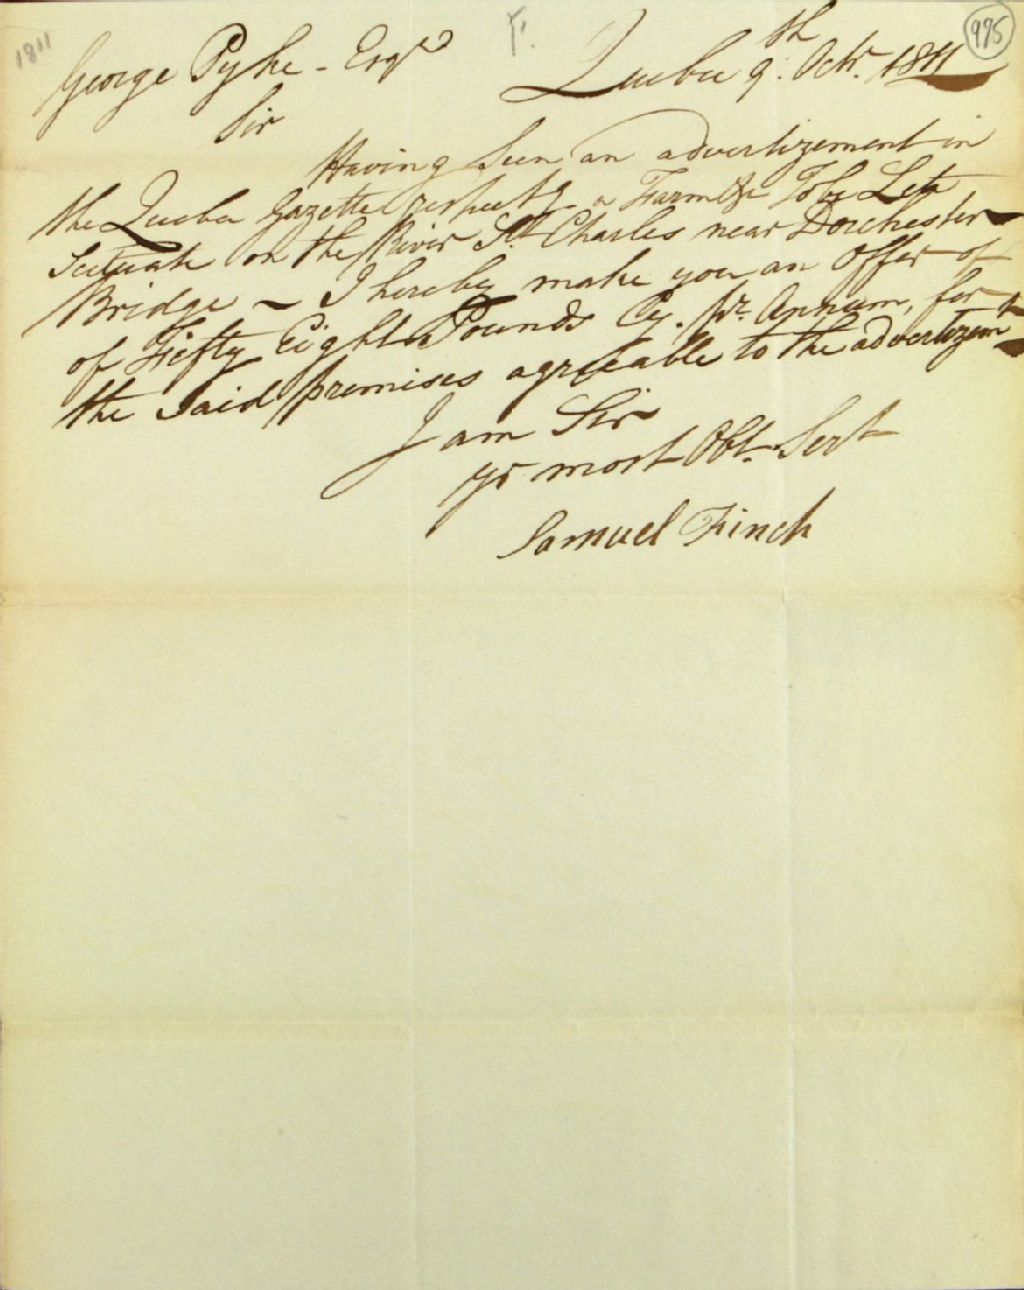 1811
F.
995
George Pyke - Esqr
Quebec 9th Octr. 1811
Sir
Having Seen an advertizement in
the Quebec Gazette respectg a Farm &c To be Lett,
Scituate on the River St Charles near Dorchester
Bridge - I hereby make you an offer of
of Fiefty Eight Pounds Cy. pr. Annum, for
the Said premises agreeable to the advertizemt
I am Sir
yr most Obt. Servt
Samuel Finch